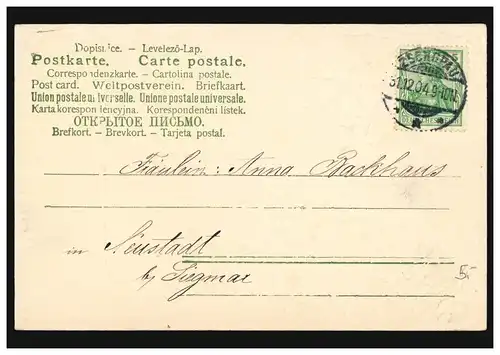 Dopisnice. – Levelező-Lap.
Postkarte. Carte postale.
Correspondenzkarte. – Cartolina postale.
Post card. Weltpostverein. Briefkaart.
Union postale universelle. Unione postale universale.
Karta korespondencyjna. Korespondenční lístek.
ОТКРЫТОЕ ПИСЬМО.
Brefkort. – Brevkort. – Tarjeta postal.
31.12.04. 9-10
Fräulein: Anna Backhaus
in Neustadt
b/ Siegmar
5.-